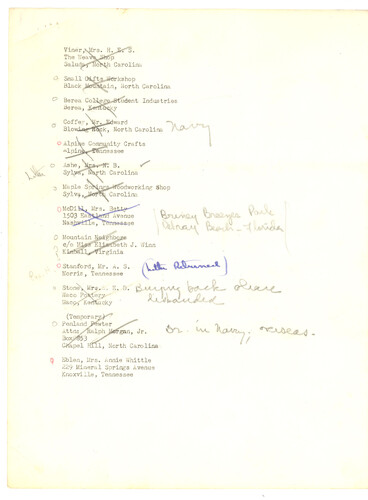 Viner, Mrs. H. E. S.
The Weave Shop
Saluda, North Carolina
Small Gifts Workshop
Black Mountain, North Carolina
Berea College Student Industries
Berea, Kentucky
Coffer, Mr. Edward
Blowing Rock, North Carolina
Navy
Alpine Community Crafts
Alpine, Tennessee
Ashe, Mrs. W. B.
Sylva, North Carolina
Maple Springs Woodworking Shop
Sylva, North Carolina
McDill, Mrs. Betty
1503 Eastland Avenue
Nashville, Tennessee
Briney Breezes Park
Delray Beach - Florida
Mountain Neighbors
c/o Miss Elizabeth J. Winn
Kimball, Virginia
Stanford, Mr. A. S.
Norris, Tennessee
(Letter Returned)
Stone, Mrs. E. D.
Waco Pottery
Waco, Kentucky
back
disbanded
(Temporary)
Penland Pewter
Attn: Ralph Morgan, Jr.
Box 853
Chapel Hill, North Carolina
Dr. in Navy, overseas.
Eblen, Mrs. Annie Whittle
229 Mineral Springs Avenue
Knoxville, Tennessee